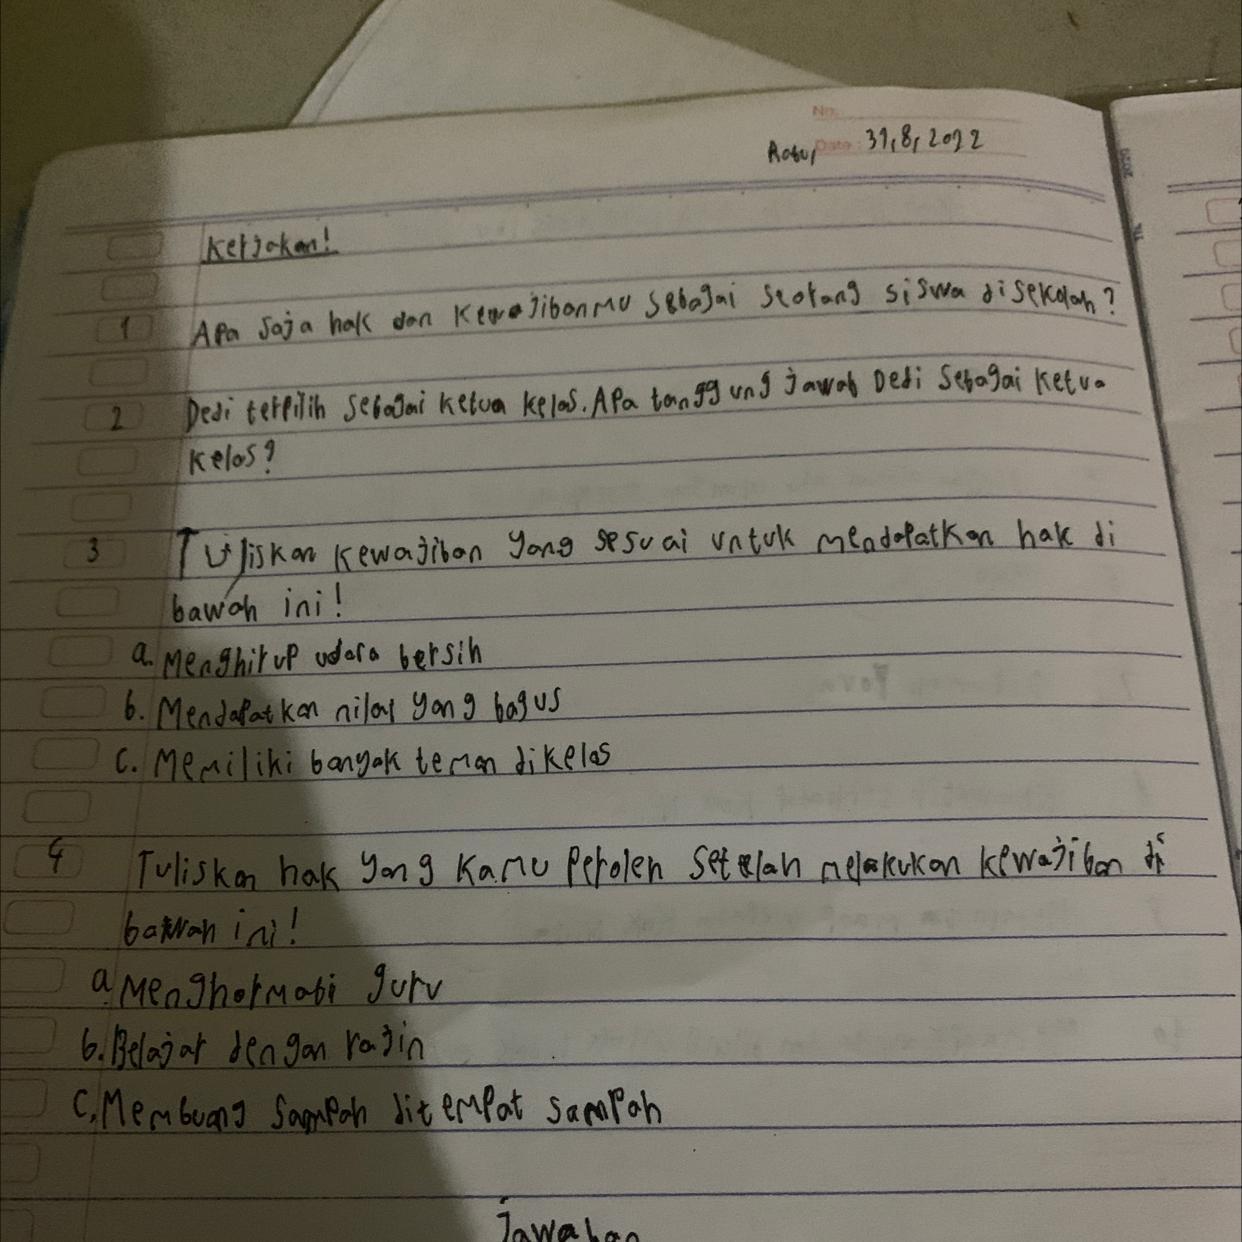 No.
Rabu, Date: 31,8,2022
Kerjakan!
1 Apa saja hak dan kewajibanmu sebagai seorang siswa disekolah?
2 Dedi terpilih sebagai ketua kelas. Apa tanggung jawab Dedi sebagai ketua
kelas?
3 Tuliskan kewajiban yang sesuai untuk mendapatkan hak di
bawah ini!
a. Menghirup udara bersih
b. Mendapatkan nilai yang bagus
c. Memiliki banyak teman dikelas
4 Tuliskan hak yang kamu peroleh setelah melakukan kewajiban di
bawah ini!
a. Menghormati guru
b. Belajar dengan rajin
c. Membuang sampah ditempat sampah
Jawaban